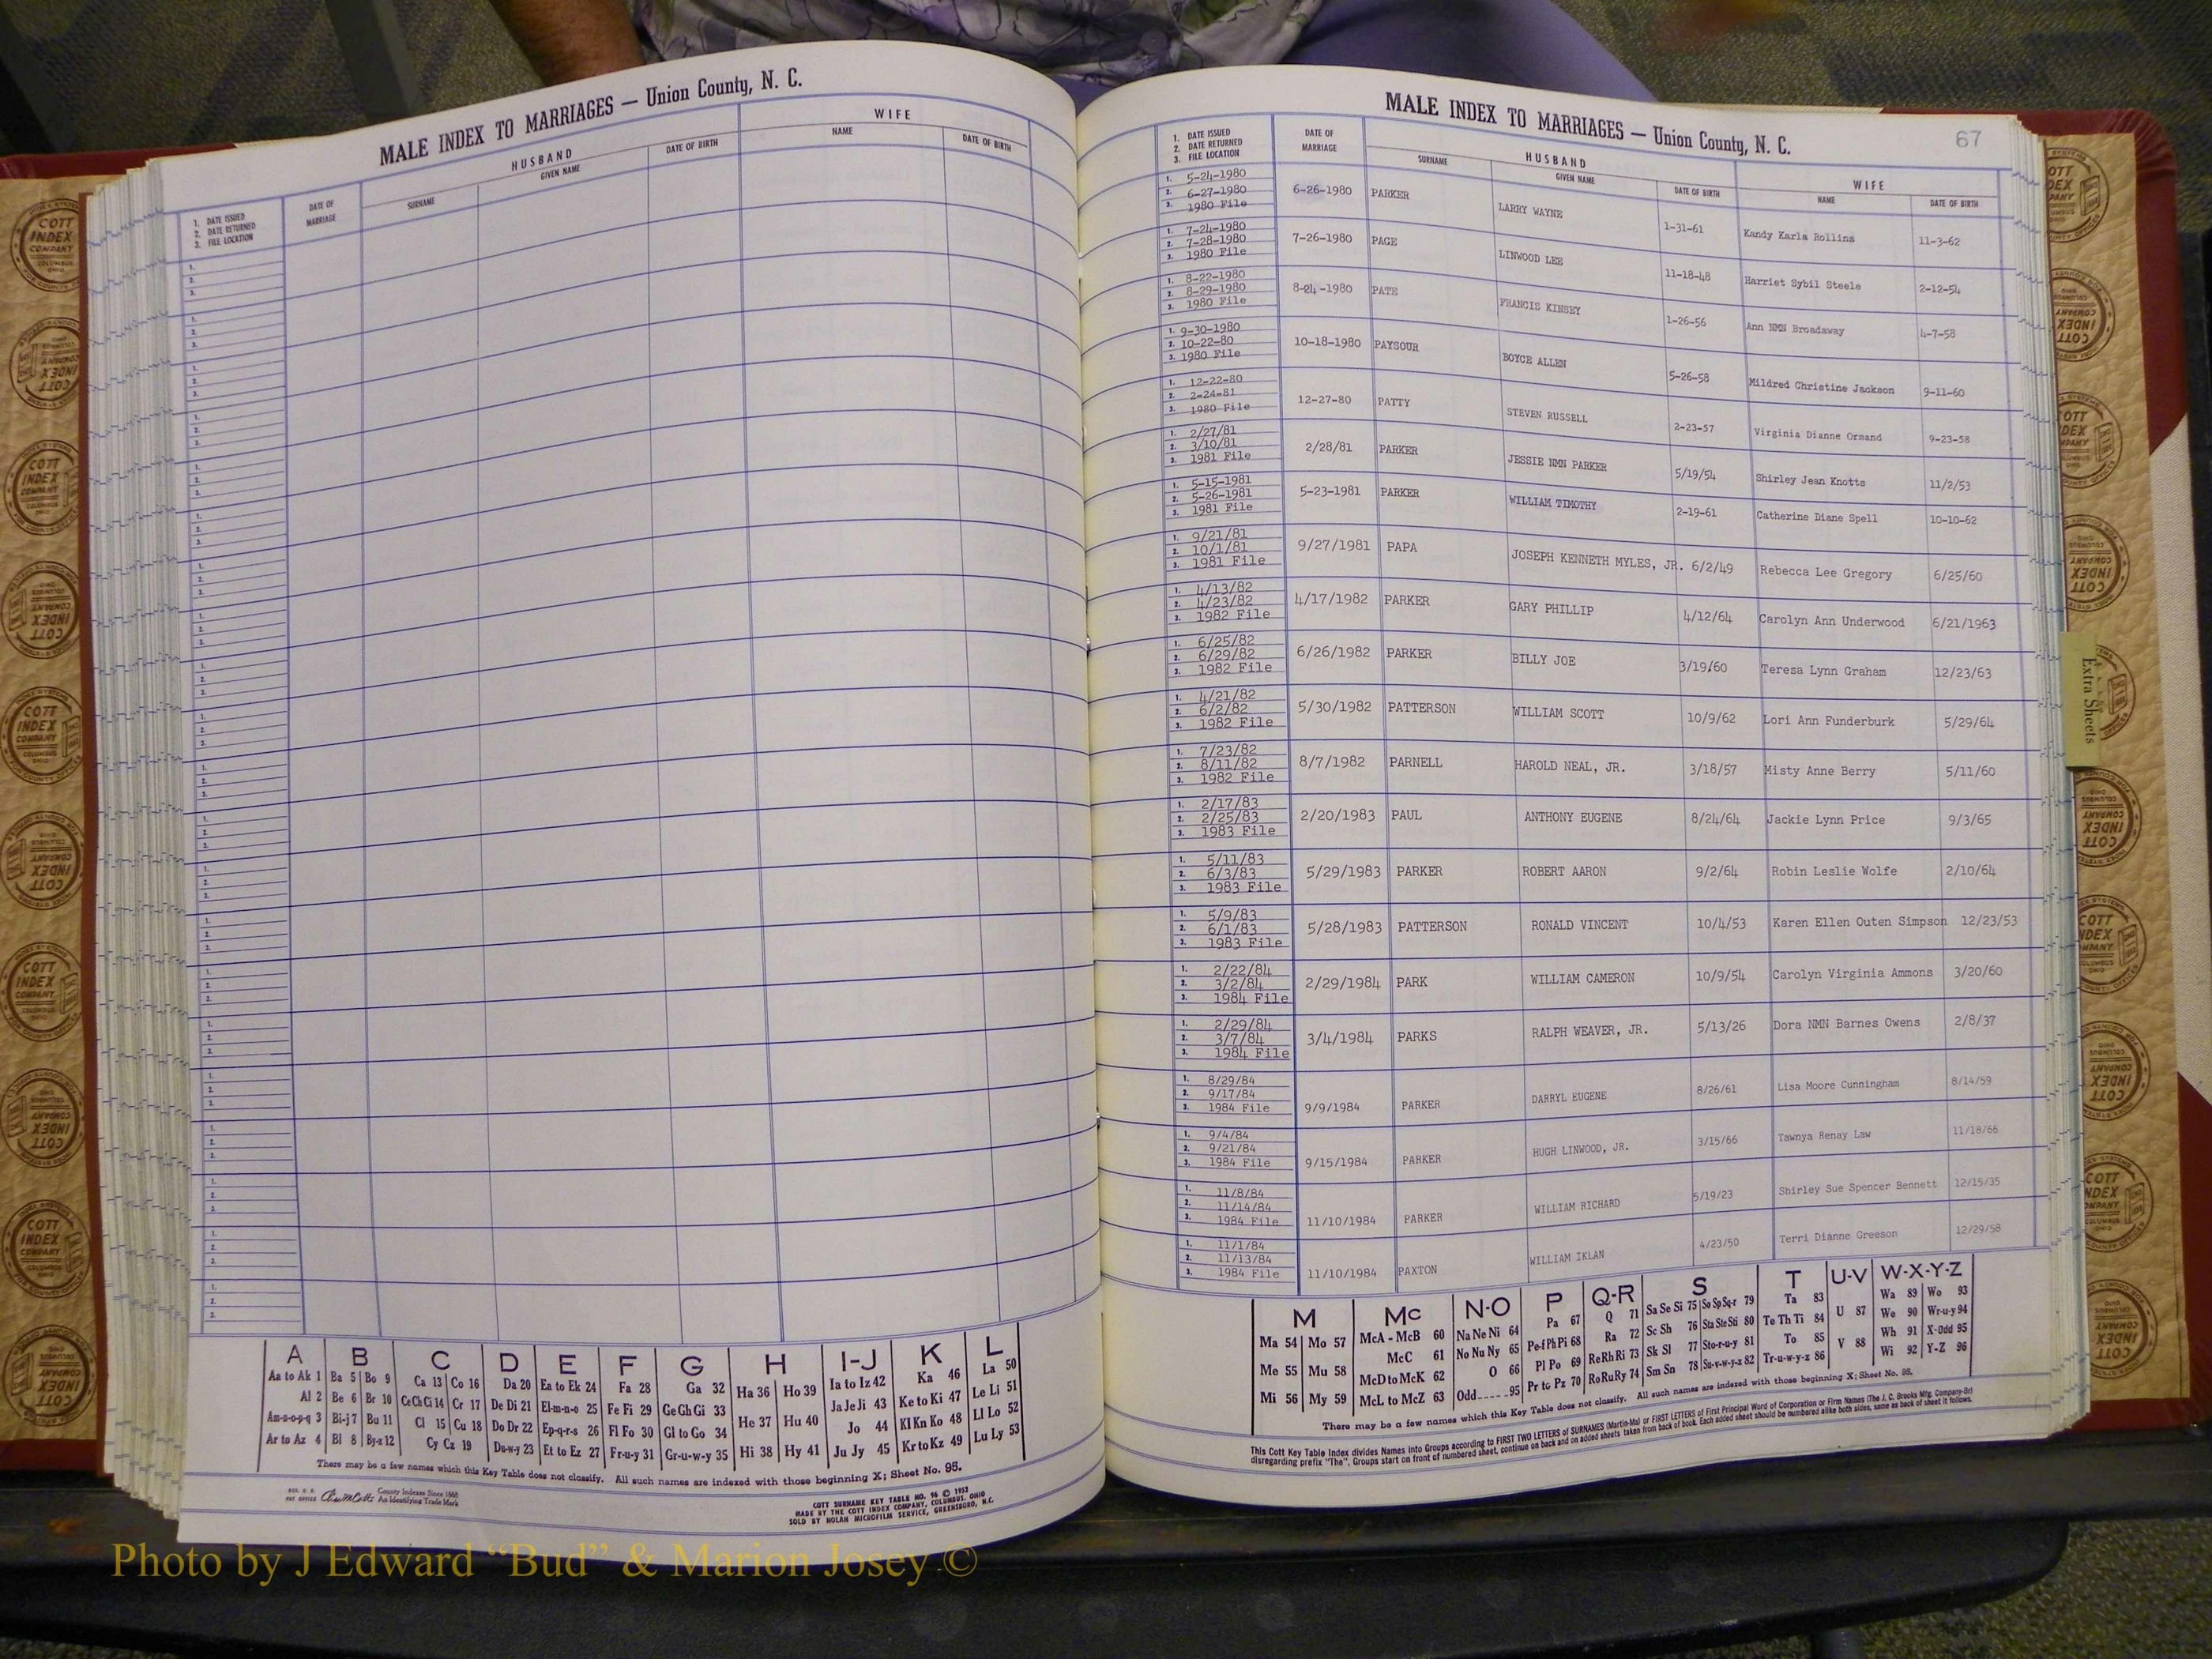 MALE INDEX TO MARRIAGES — Union County, N. C.
1. DATE ISSUED
2. DATE RETURNED
3. FILE LOCATION
DATE OF MARRIAGE
HUSBAND
SURNAME GIVEN NAME DATE OF BIRTH
WIFE
NAME DATE OF BIRTH
A B C D E F G H I-J K L
Aa to Ak 1 Ba 5 Bo 9 Ca 13 Co 16 Da 20 Ea to Ek 24 Fa 28 Ga 32 Ha 36 Ho 39 Ia to Iz 42 Ka 46 La 50
Al 2 Be 6 Br 10 Ce Ch Ci 14 Cr 17 De Di 21 El-m-n-o 25 Fe Fi 29 Ge Gh Gi 33 Ja Je Ji 43 Ke to Ki 47 Le Li 51
Am-n-o-p-q 3 Bi-j 7 Bu 11 Cl 15 Cu 18 Do Dr 22 Ep-q-r-s 26 Fl Fo 30 Gl to Go 34 He 37 Hu 40 Jo 44 Kl Kn Ko 48 Ll Lo 52
Ar to Az 4 Bl 8 By-z 12 Cy Cz 19 Du-w-y 23 Et to Ez 27 Fr-u-y 31 Gr-u-w-y 35 Hi 38 Hy 41 Ju Jy 45 Kr to Kz 49 Lu Ly 53
There may be a few names which this Key Table does not classify. All such names are indexed with those beginning X; Sheet No. 95.
County Indexes Since 1888
An Identifying Trade Mark
COTT SURNAME KEY TABLE NO. 96 © 1952
MADE BY THE COTT INDEX COMPANY, COLUMBUS, OHIO
SOLD BY NOLAN MICROFILM SERVICE, GREENSBORO, N.C.
MALE INDEX TO MARRIAGES — Union County, N. C.
67
1. DATE ISSUED
2. DATE RETURNED
3. FILE LOCATION
DATE OF MARRIAGE
HUSBAND
SURNAME GIVEN NAME DATE OF BIRTH
WIFE
NAME DATE OF BIRTH
1. 5-24-1980
2. 6-27-1980
3. 1980 File
6-26-1980 PARKER LARRY WAYNE 1-31-61 Kandy Karla Rollins 11-3-62
1. 7-24-1980
2. 7-28-1980
3. 1980 File
7-26-1980 PAGE LINWOOD LEE 11-18-48 Harriet Sybil Steele 2-12-54
1. 8-22-1980
2. 8-29-1980
3. 1980 File
8-24-1980 PATE FRANCIS KINSEY 1-26-56 Ann NMN Broadaway 4-7-58
1. 9-30-1980
2. 10-22-80
3. 1980 File
10-18-1980 PAYSOUR BOYCE ALLEN 5-26-58 Mildred Christine Jackson 9-11-60
1. 12-22-80
2. 2-24-81
3. 1980 File
12-27-80 PATTY STEVEN RUSSELL 2-23-57 Virginia Dianne Ormand 9-23-58
1. 2/27/81
2. 3/10/81
3. 1981 File
2/28/81 PARKER JESSIE NMN PARKER 5/19/54 Shirley Jean Knotts 11/2/53
1. 5-15-1981
2. 5-26-1981
3. 1981 File
5-23-1981 PARKER WILLIAM TIMOTHY 2-19-61 Catherine Diane Spell 10-10-62
1. 9/21/81
2. 10/1/81
3. 1981 File
9/27/1981 PAPA JOSEPH KENNETH MYLES, JR. 6/2/49 Rebecca Lee Gregory 6/25/60
1. 4/13/82
2. 4/23/82
3. 1982 File
4/17/1982 PARKER GARY PHILLIP 4/12/64 Carolyn Ann Underwood 6/21/1963
1. 6/25/82
2. 6/29/82
3. 1982 File
6/26/1982 PARKER BILLY JOE 3/19/60 Teresa Lynn Graham 12/23/63
1. 4/21/82
2. 6/2/82
3. 1982 File
5/30/1982 PATTERSON WILLIAM SCOTT 10/9/62 Lori Ann Funderburk 5/29/64
1. 7/23/82
2. 8/11/82
3. 1982 File
8/7/1982 PARNELL HAROLD NEAL, JR. 3/18/57 Misty Anne Berry 5/11/60
1. 2/17/83
2. 2/25/83
3. 1983 File
2/20/1983 PAUL ANTHONY EUGENE 8/24/64 Jackie Lynn Price 9/3/65
1. 5/11/83
2. 6/3/83
3. 1983 File
5/29/1983 PARKER ROBERT AARON 9/2/64 Robin Leslie Wolfe 2/10/64
1. 5/9/83
2. 6/1/83
3. 1983 File
5/28/1983 PATTERSON RONALD VINCENT 10/4/53 Karen Ellen Outen Simpson 12/23/53
1. 2/22/84
2. 3/2/84
3. 1984 File
2/29/1984 PARK WILLIAM CAMERON 10/9/54 Carolyn Virginia Ammons 3/20/60
1. 2/29/84
2. 3/7/84
3. 1984 File
3/4/1984 PARKS RALPH WEAVER, JR. 5/13/26 Dora NMN Barnes Owens 2/8/37
1. 8/29/84
2. 9/17/84
3. 1984 File
9/9/1984 PARKER DARRYL EUGENE 8/26/61 Lisa Moore Cunningham 8/14/59
1. 9/4/84
2. 9/21/84
3. 1984 File
9/15/1984 PARKER HUGH LINWOOD, JR. 3/15/66 Tawnya Renay Law 11/18/66
1. 11/8/84
2. 11/14/84
3. 1984 File
11/10/1984 PARKER WILLIAM RICHARD 5/19/23 Shirley Sue Spencer Bennett 12/15/35
1. 11/1/84
2. 11/13/84
3. 1984 File
11/10/1984 PAXTON WILLIAM IKLAN 4/23/50 Terri Dianne Greeson 12/29/58
M Mc N-O P Q-R S T U-V W-X-Y-Z
Ma 54 Mo 57 McA - McB 60 Na Ne Ni 64 Pa 67 Q 71 Sa Se Si 75 So Sp Sq-r 79 Ta 83 U 87 Wa 89 Wo 93
Me 55 Mu 58 McC 61 No Nu Ny 65 Pe-f Ph Pi 68 Ra 72 Sc Sh 76 Sta Ste Sti 80 Te Th Ti 84 V 88 We 90 Wr-u-y 94
McD to McK 62 O 66 Pl Po 69 Re Rh Ri 73 Sk Sl 77 Sto-r-u-y 81 To 85 Wh 91 X-Odd 95
Mi 56 My 59 McL to McZ 63 Odd 95 Pr to Pz 70 Ro Ru Ry 74 Sm Sn 78 Su-v-w-y-z 82 Tr-u-w-y-z 86 Wi 92 Y-Z 96
There may be a few names which this Key Table does not classify. All such names are indexed with those beginning X; Sheet No. 95.
This Cott Key Table Index divides Names into Groups according to FIRST TWO LETTERS of SURNAMES (Martin-Ma) or FIRST LETTERS of First Principal Word of Corporation or Firm Names (The J. C. Brooks Mfg. Company-Br)
disregarding prefix "The". Groups start on front of numbered sheet, continue on back and on added sheets taken from back of book. Each added sheet should be numbered alike both sides, same as back of sheet it follows.
Extra Sheets
COTT INDEX COMPANY COLUMBUS OHIO
Photo by J Edward "Bud" & Marion Josey ©